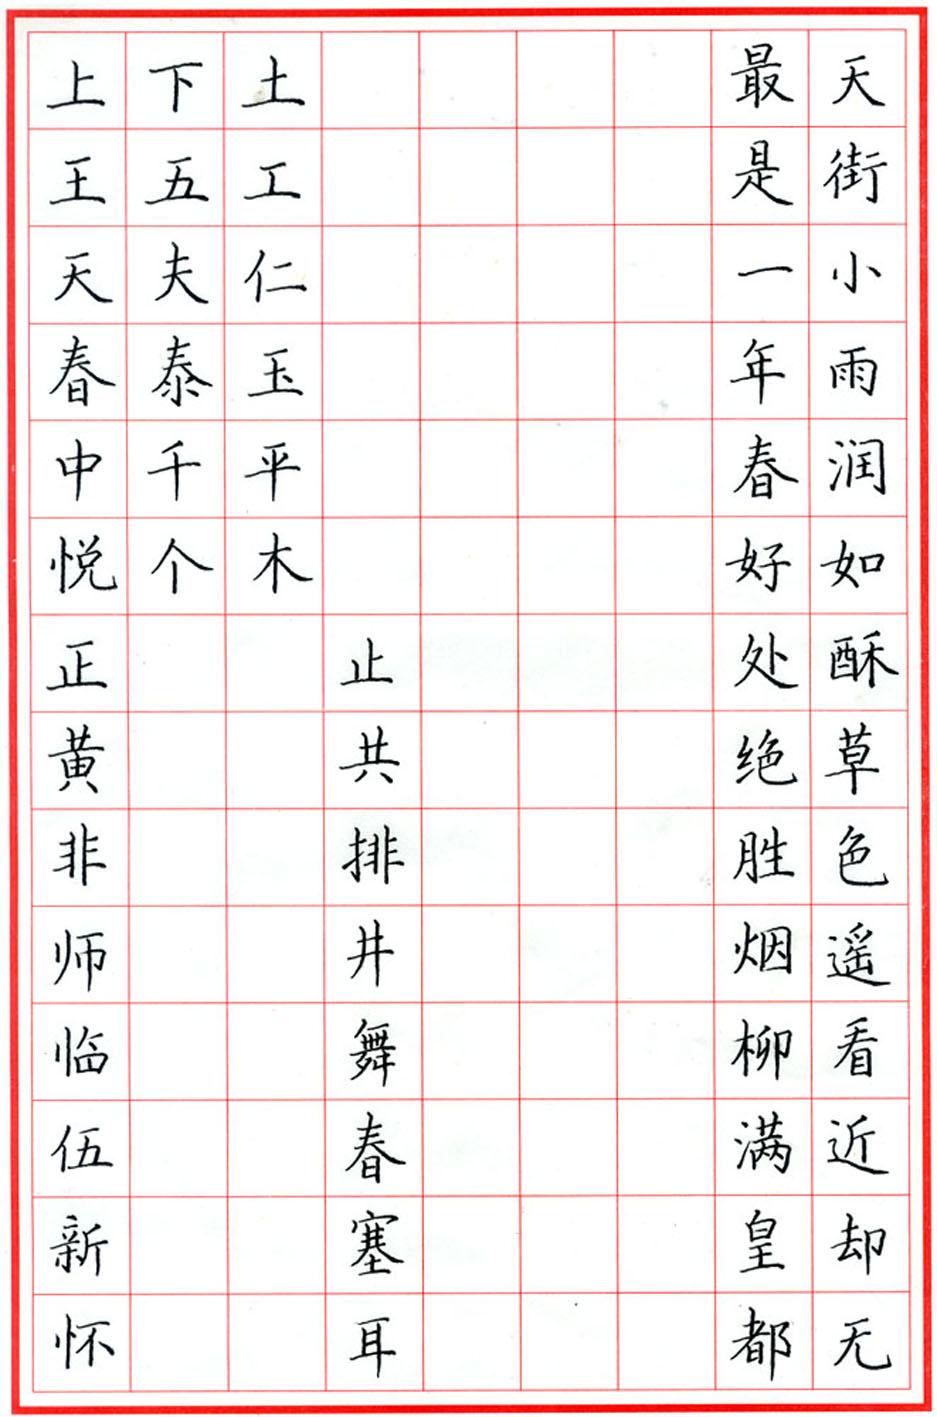 天街小雨润如酥草色遥看近却无
最是一年春好处绝胜烟柳满皇都
上下土
王五工
天夫仁
春泰玉
中千平
悦个木
正止
黄共
非排
师井
临舞
伍春
新塞
怀耳